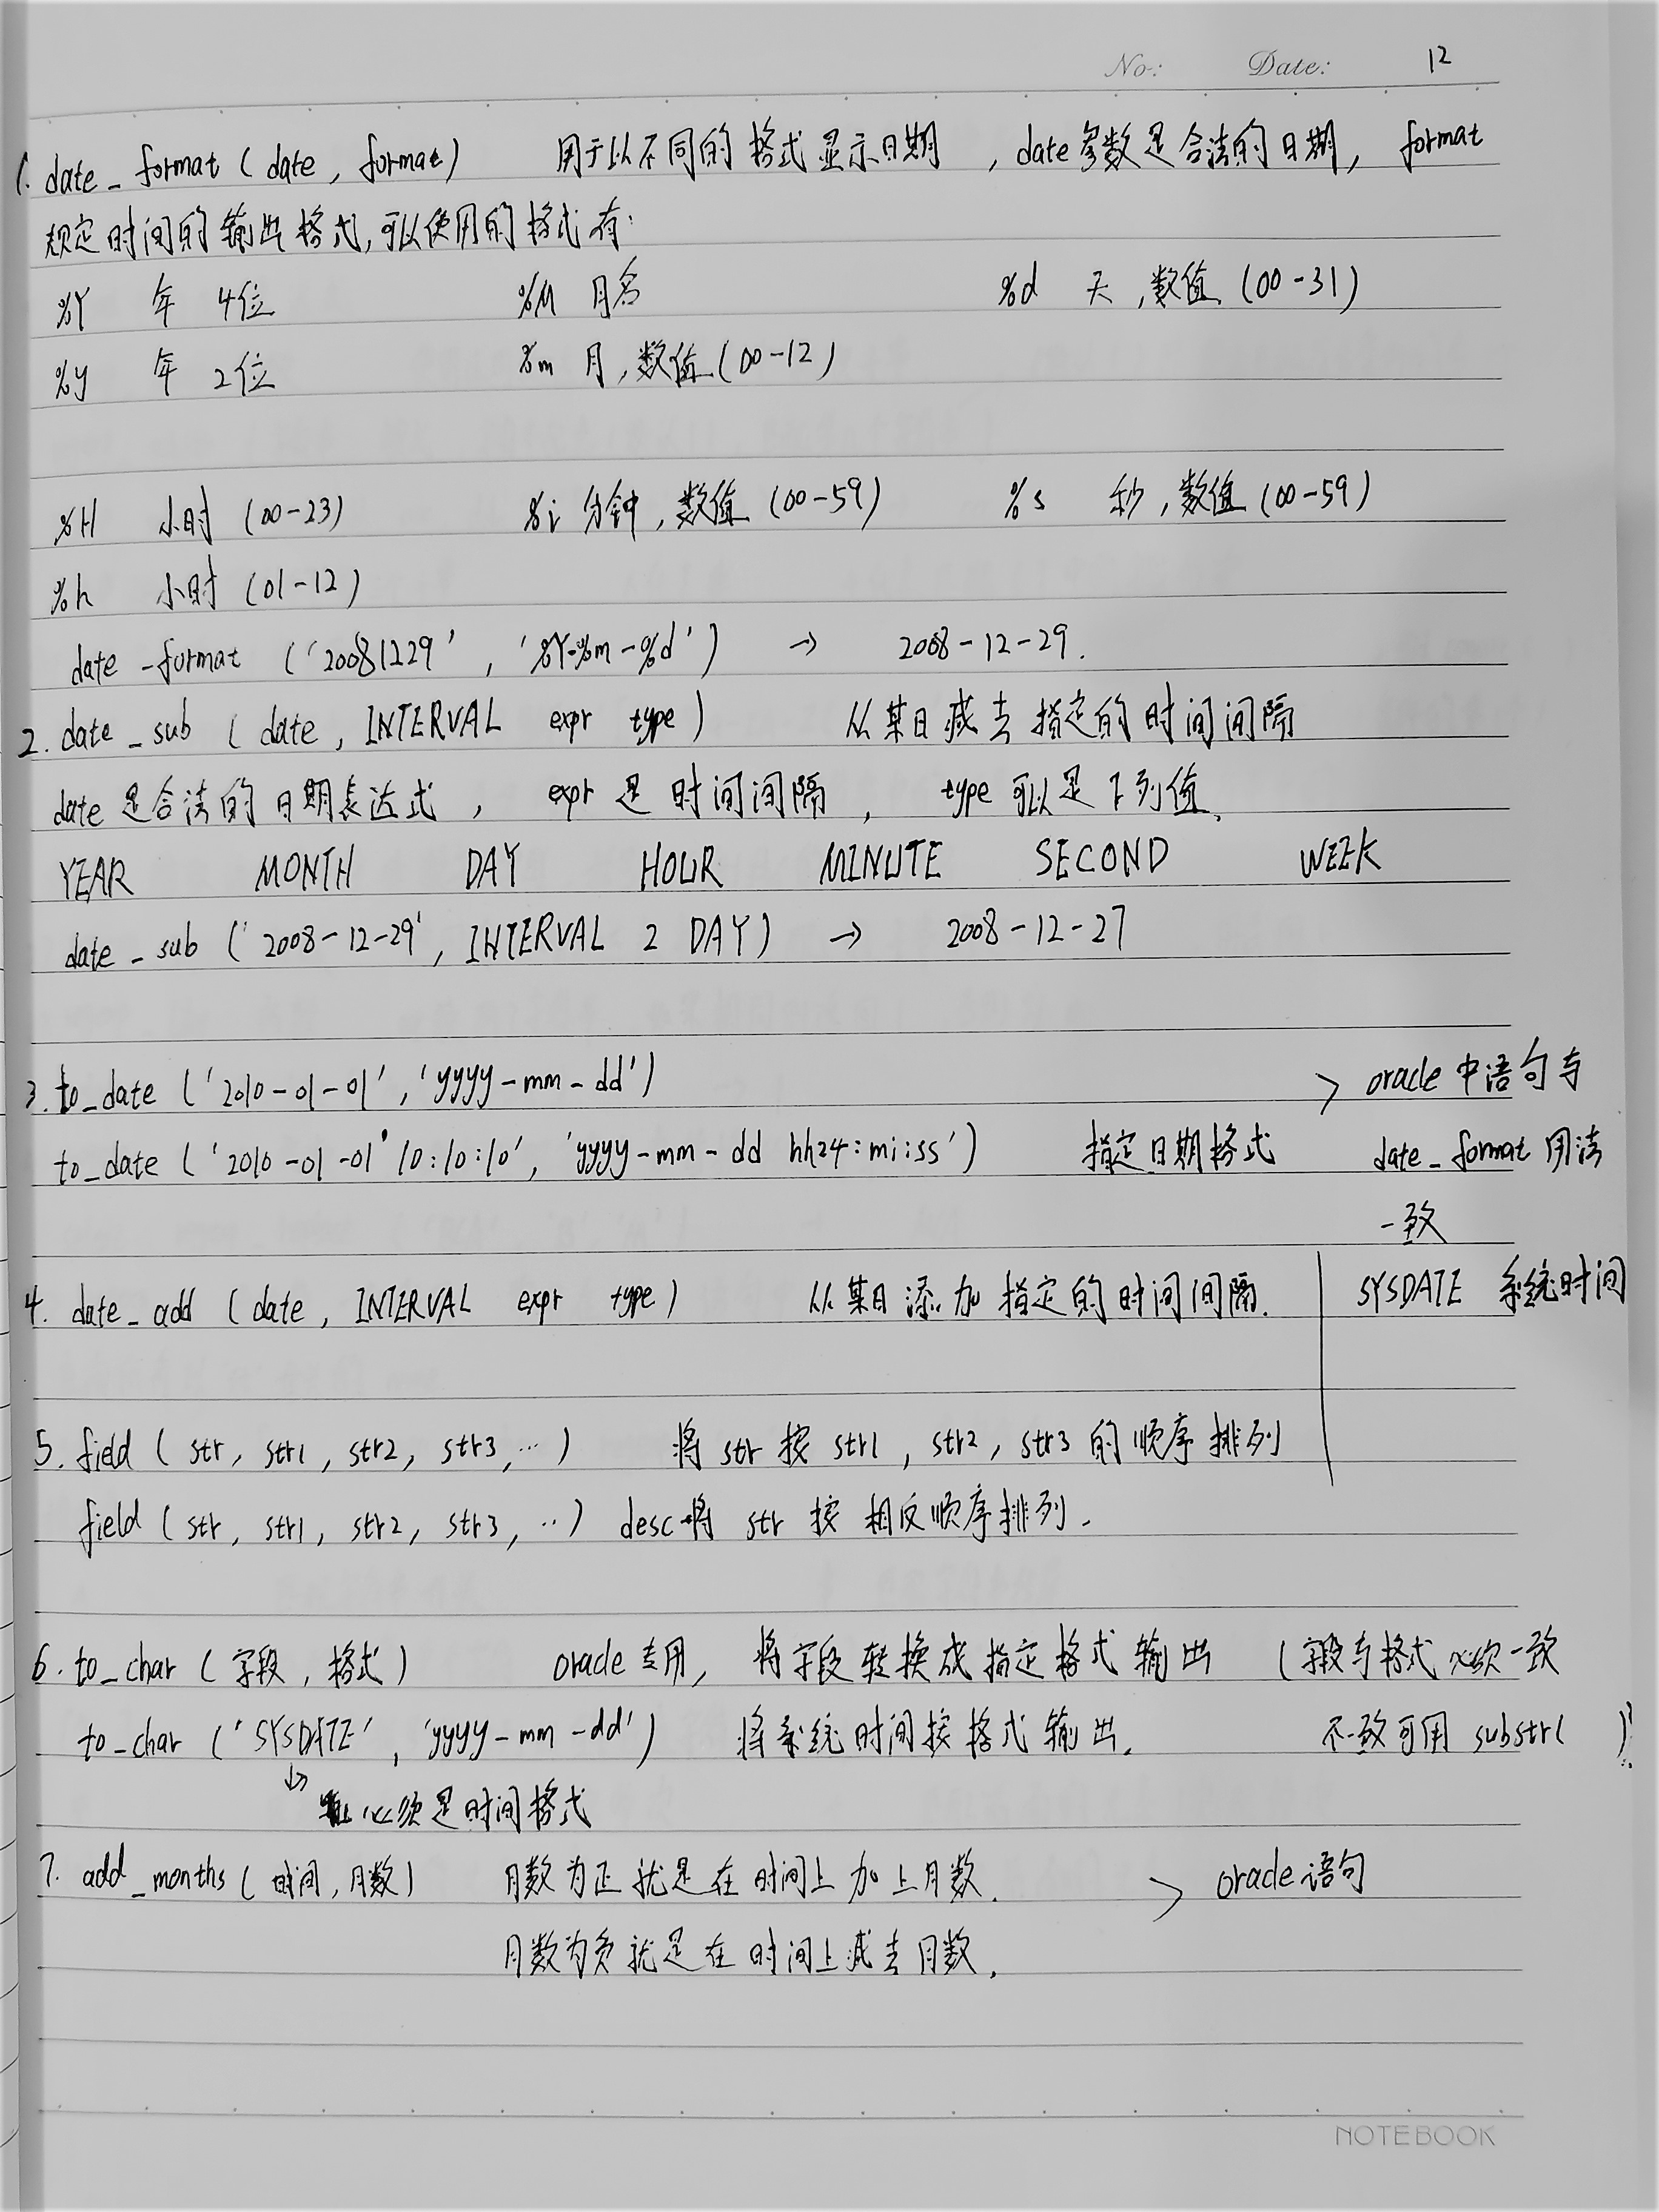 No: Date: 12
1. date_format (date, format) 用于以不同的格式显示日期，date参数是合法的日期，format
规定时间的输出格式,可以使用的格式有:
%Y 年 4位 %M 月名 %d 天,数值 (00-31)
%y 年 2位 %m 月,数值(00-12)
%H 小时 (00-23) %i 分钟,数值 (00-59) %s 秒,数值 (00-59)
%h 小时 (01-12)
date_format ('20081229', '%Y-%m-%d') → 2008-12-29.
2. date_sub (date, INTERVAL expr type) 从某日减去指定的时间间隔
date是合法的日期表达式, expr 是时间间隔, type可以是下列值.
YEAR MONTH DAY HOUR MINUTE SECOND WEEK
date_sub ('2008-12-29', INTERVAL 2 DAY) → 2008-12-27
3. to_date ('2010-01-01', 'yyyy-mm-dd') > oracle中语句与
to_date ('2010-01-01 10:10:10', 'yyyy-mm-dd hh24:mi:ss') 指定日期格式 date_format用法
一致
4. date_add (date, INTERVAL expr type) 从某日添加指定的时间间隔. SYSDATE 系统时间
5. field (str, str1, str2, str3, …) 将 str 按 str1, str2, str3 的顺序排列
field (str, str1, str2, str3, ..) desc 将 str 按相反顺序排列.
6. to_char (字段, 格式) oracle专用, 将字段转换成指定格式输出 (字段与格式必须一致
to_char ('SYSDATE', 'yyyy-mm-dd') 将系统时间按格式输出. 不一致可用 substr( )
↳ 必须是时间格式
7. add_months (时间, 月数) 月数为正就是在时间上加上月数. > oracle语句
月数为负就是在时间上减去月数.
NOTEBOOK